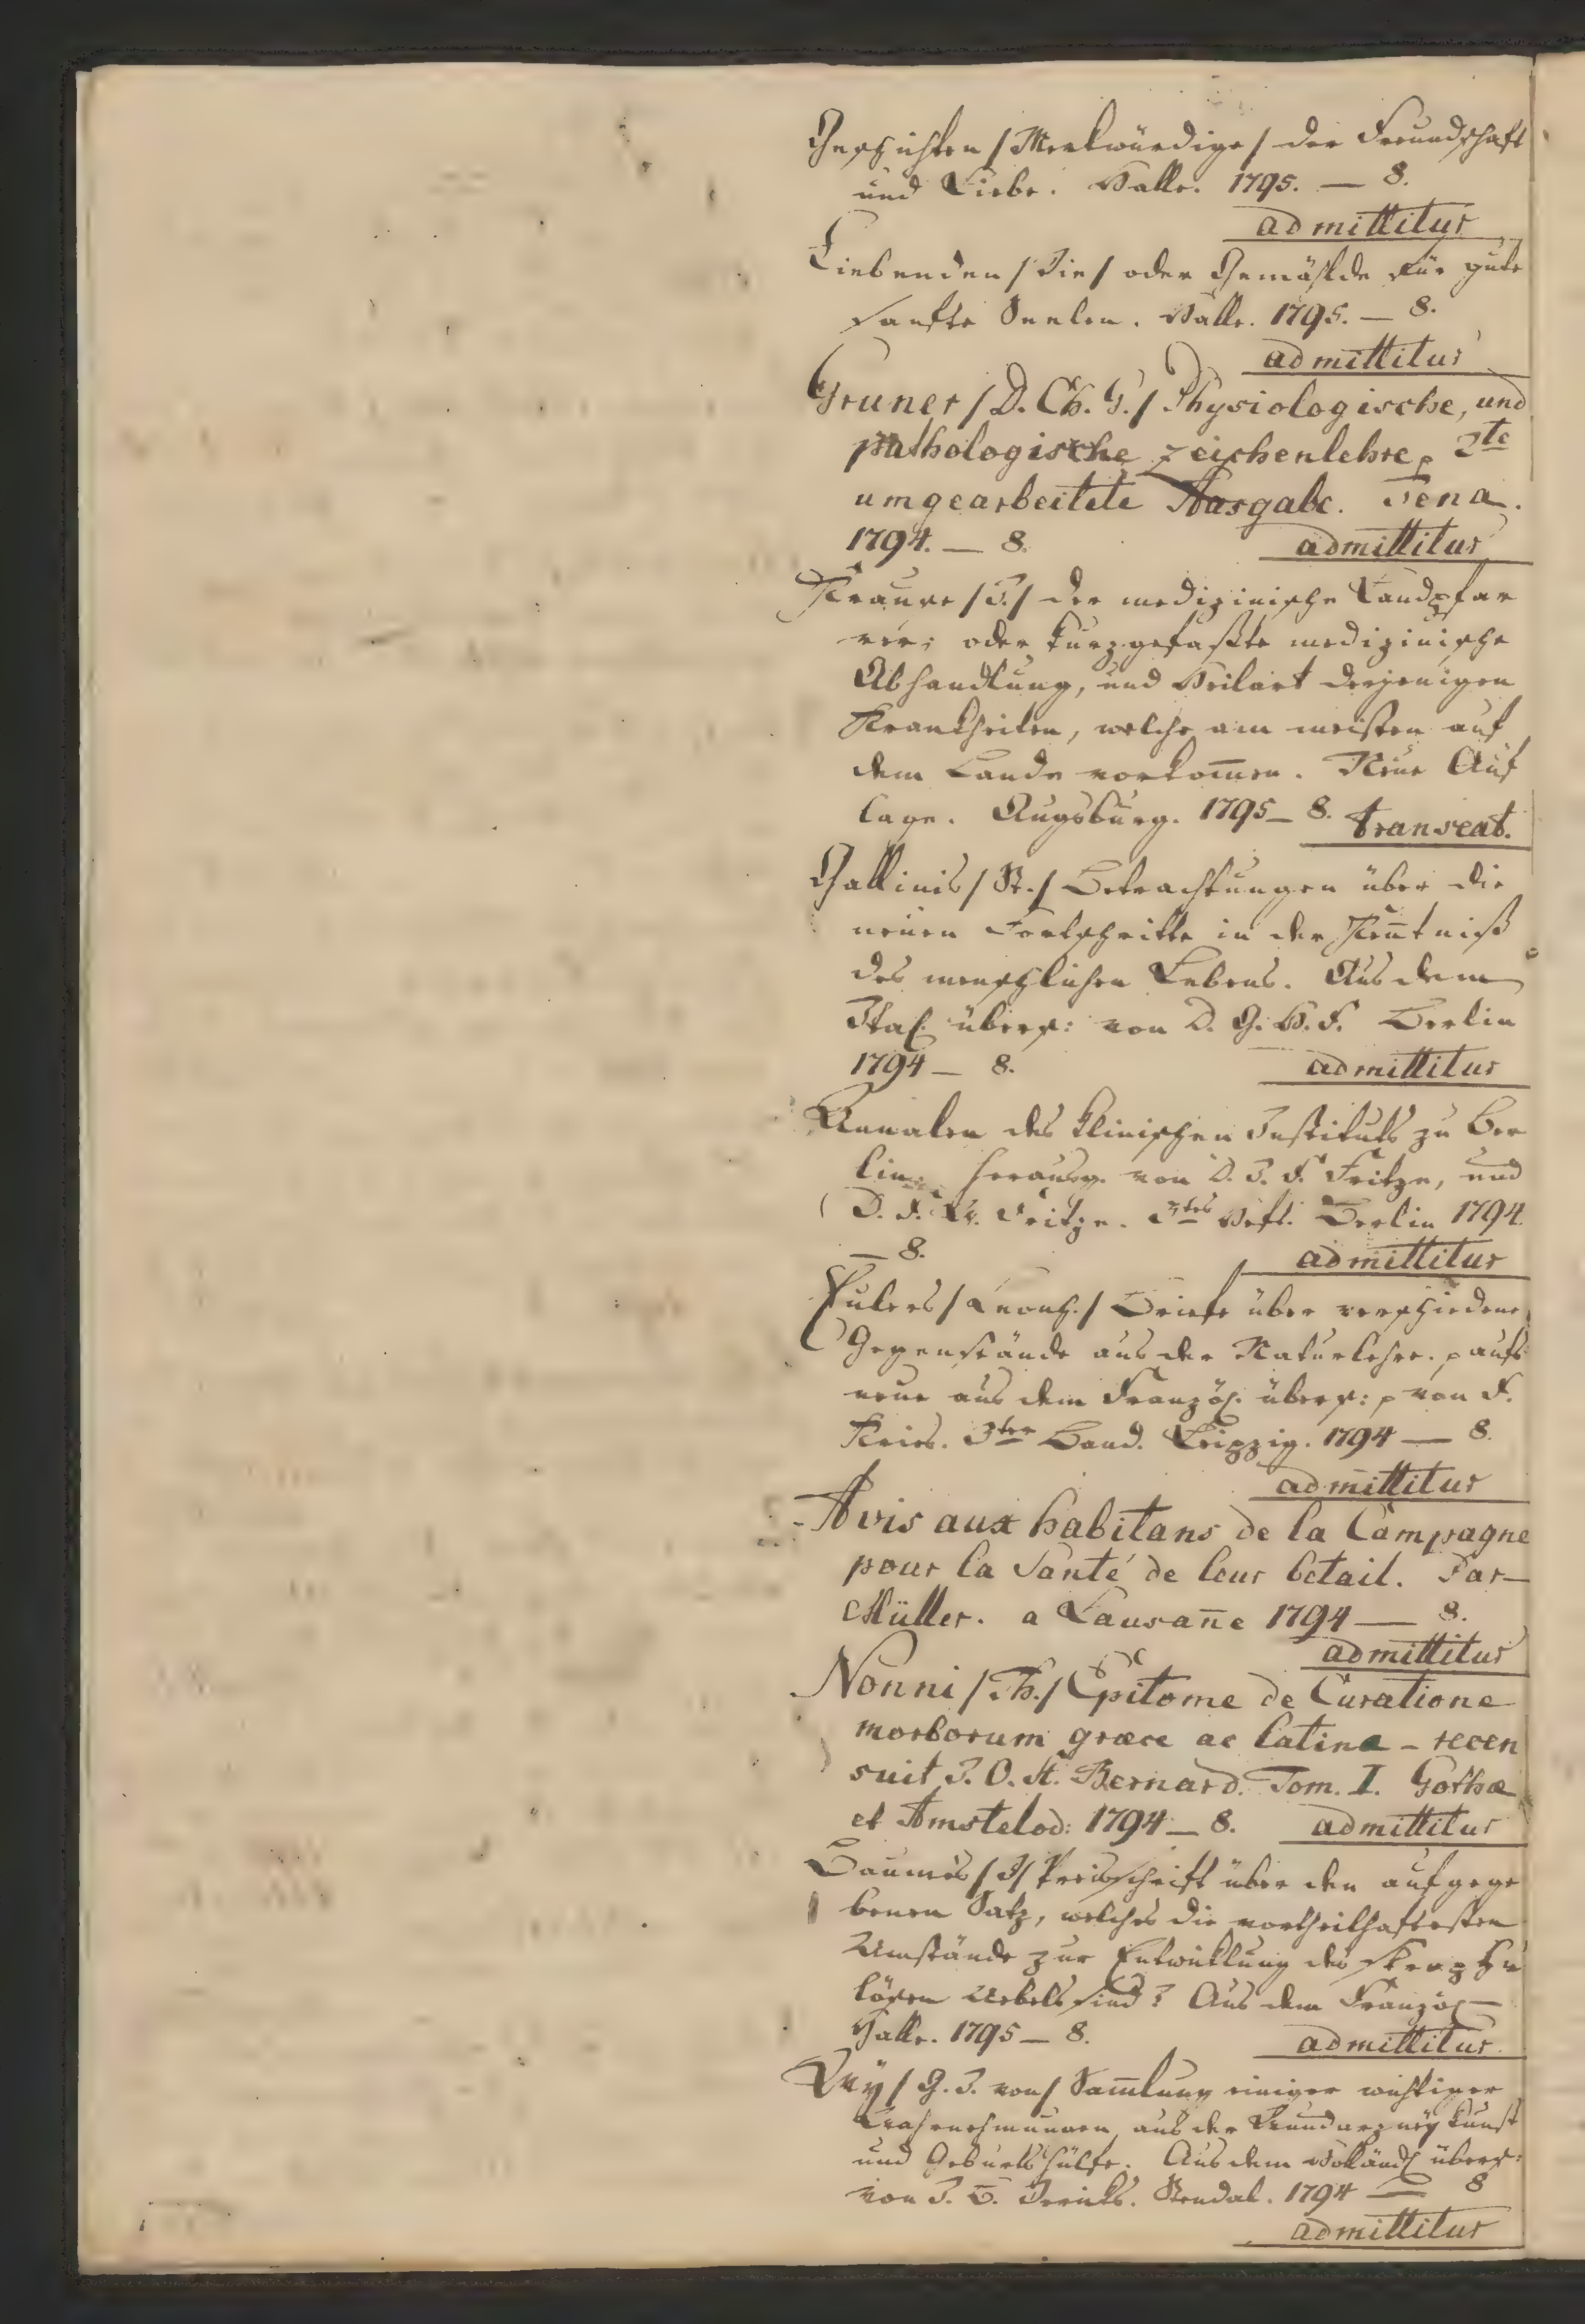 Geschichten /Merkwürdige/ der Freundschaft
und Liebe. Halle. 1795. — 8.
admittitur
Liebenden /Die/ oder Gemählde für gute
sanfte Seelen. Halle. 1795. — 8.
admittitur
Gruner /D. Ch. G./ Physiologische, und
pathologische zeichenlehre, 2te
umgearbeitete Ausgabe. Jena.
1794. — 8. admittitur
Krause /J./ der medizinische Landpfar
rer; oder kurzgefaßte medizinische
Abhandlung, und Heilart derjenigen
Krankheiten, welche am meisten auf
dem Lande vorkom̄en. Neue Auf
lage. Augsburg. 1795 — 8. transeat.
Gallinis /St./ Betrachtungen über die
neuen Fortschritte in der Ken̄tniß
des menschlichen Lebens. Aus dem
Ital. übers: von D. G. H. F. Berlin
1794 — 8. admittitur
Annalen des klinischen Instituts zu Ber
lin. herausg. von D. J. F. Fritze, und
D. F. A. Fritze. 3tes Heft. Berlin 1794.
— 8. admittitur
Eulers /Leonh./ Briefe über verschiedene
Gegenstände aus der Naturlehre. p aufs
neue aus dem Französ. übers: p von F.
Kries. 3ter Band. Leipzig. 1794 — 8.
admittitur
Avis aux habitans de la Campagne
pour la Santé de leur betail. Par
Müller. a Lausan̄e 1794 — 8.
admittitur
Nonni /Th./ Epitome de Curatione
morborum græce ac latine — recen
suit J. O. St. Bernard. Tom. I. Gothæ
et Amstelod: 1794 — 8. admittitur
Baumès /J/ Preisschrift über den aufgege
benen Satz, welches die vortheilhaftesten
Umstände zur Entwicklung des skrophu
lösen Uebels sind? Aus dem Französ
Halle. 1795 — 8. admittitur
Wy / G. J. von/ Sam̄lung einiger wichtiger
Wahrnehmungen aus der Wundarzneykunst
und Geburtshülfe. Aus dem Holländ. übers:
von J. B. Stendal. 1794 — 8
admittitur